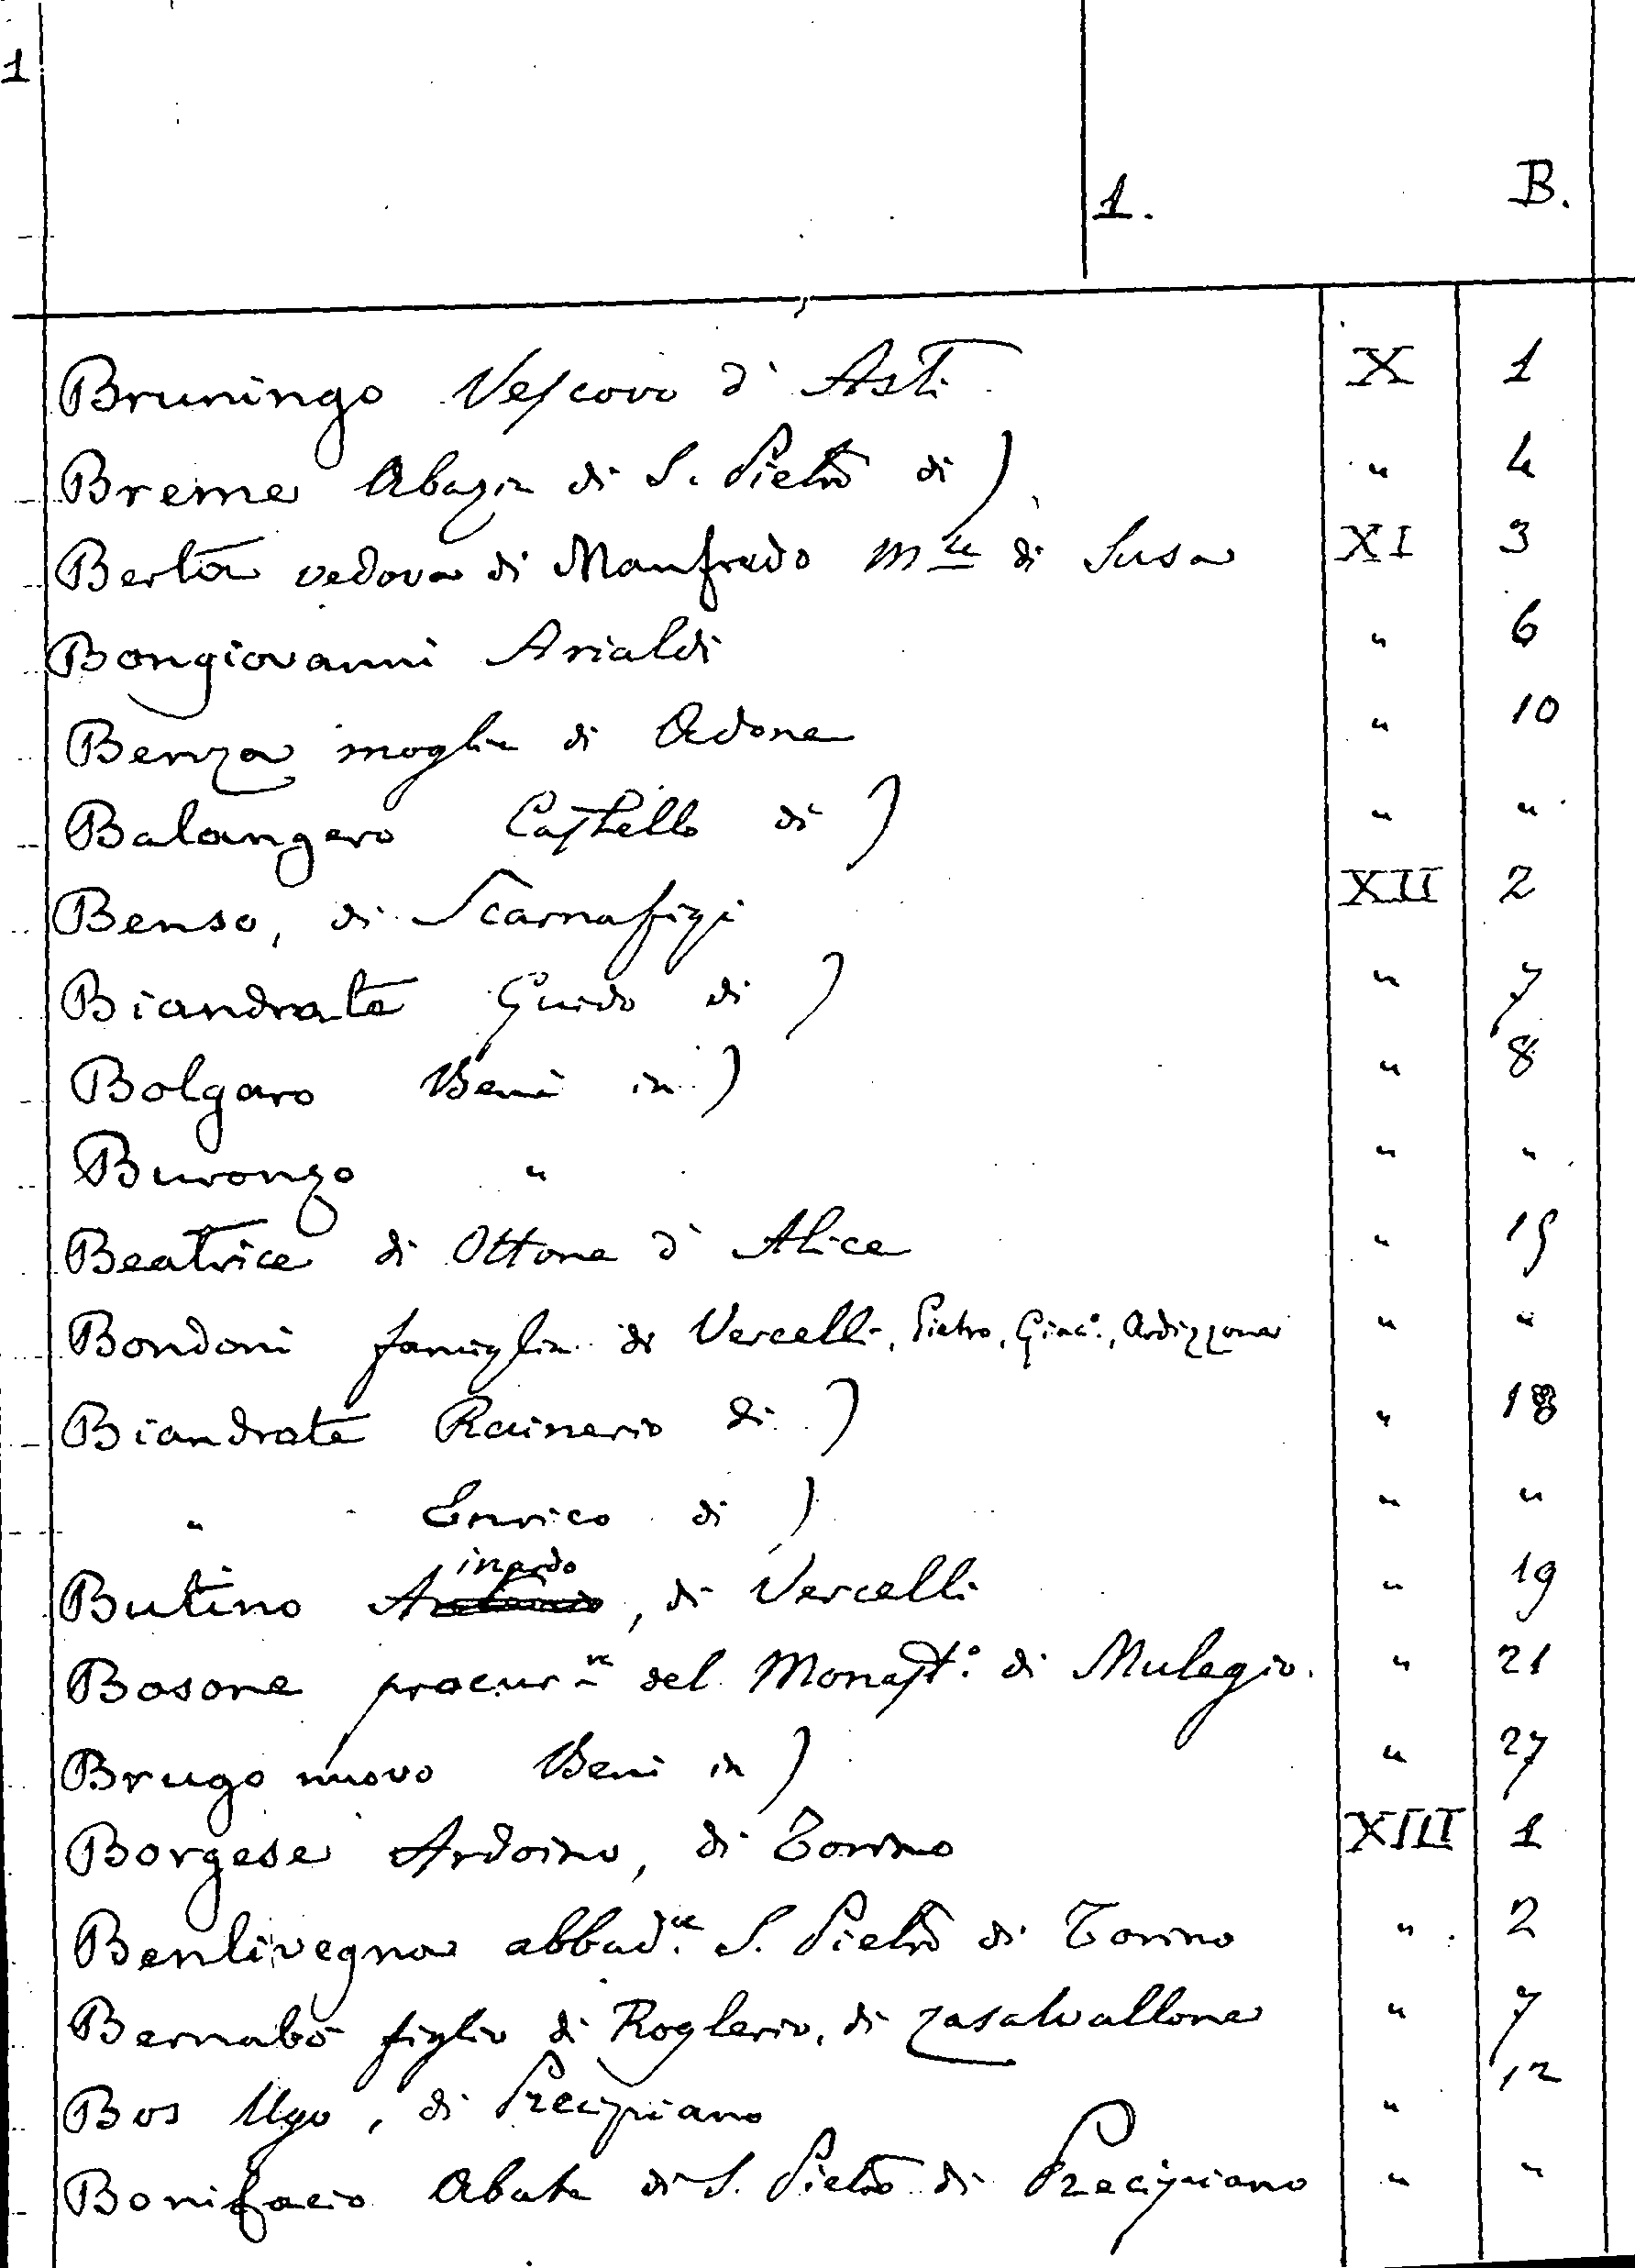 1
1. B.
Bruningo Vescovo d'Asti X 1
Breme Abazia di S. Pietro di ) " 4
Berta vedova di Manfredo m.se di Susa XI 3
Bongiovanni Arialdi " 6
Benza moglie di Adone " 10
Balangero Castello di ) " "
Benso, di Scarnafigi XII 2
Biandrate Guido di ) " 7
Bolgaro Beni in ) " 8
Buronzo " " "
Beatrice di Ottone d'Alice " 15
Bondoni famiglia di Vercelli, Pietro, Giac.o, Ardizzone " "
Biandrate Rainerio di ) " 18
" Enrico di ) " "
inardo
Butino A, di Vercelli " 19
Bosone procur.re del Monast.o di Mulegio. " 21
Brugo nuovo Beni in ) " 27
Borgese Ardoino, di Torino XIII 1
Bentivegna abbad.se S. Pietro di Torino " 2
Bernabò figlio di Roglerio, di " 7
Bos Ugo, di Precipiano " 12
Bonifacio Abate di S. Pietro di Precipiano " "